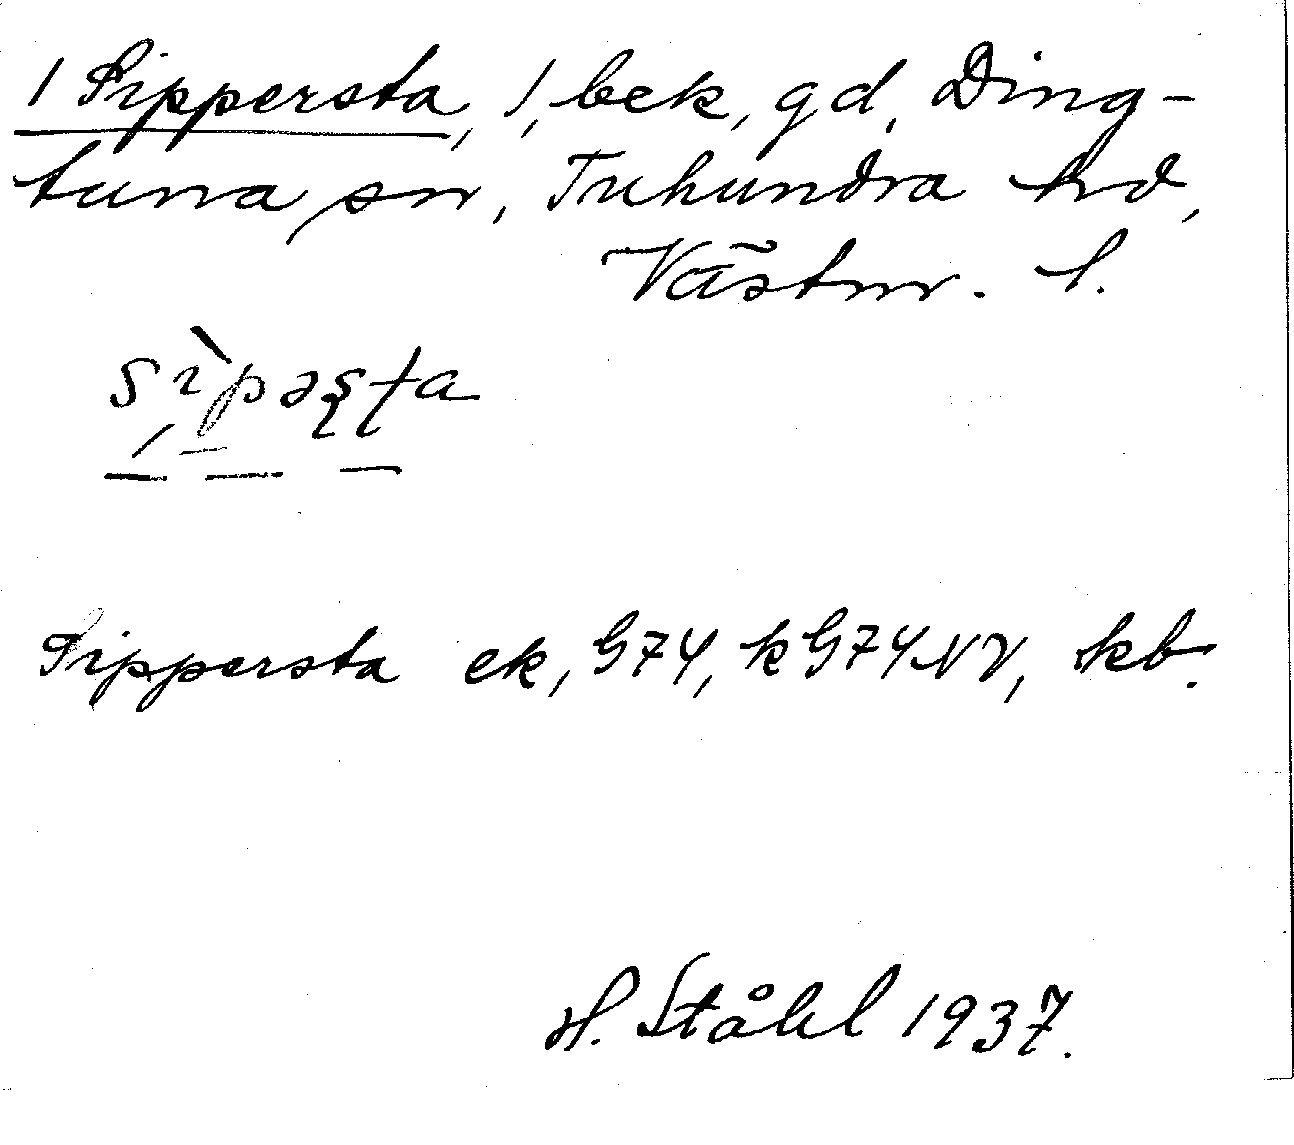 1 Sippersta, 1, bek, gd, Ding-
tuna sn, Tuhundra hd,
Västm. l.
sìpəʂʈa
Sippersta ek, G74, kG74NV, kb.
H. Ståhl 1937.